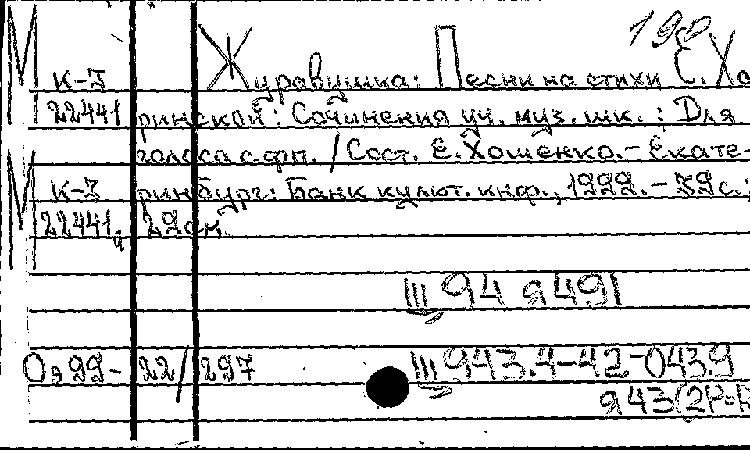 М Журавушка: Песни на стихи С. Хо
К-3
22441 ринской: Сочинения уч. муз. шк.: Для
голоса с фп. / Сост. Е. Хошенко. - Екате-
М К-3 ринбург: Банк культ. инф., 1999. - 39 с.;
22441 29 см.
Ш 94 я491
Оз 99- 22/297 Ш 943.4-42-043.9
я43(2Р-